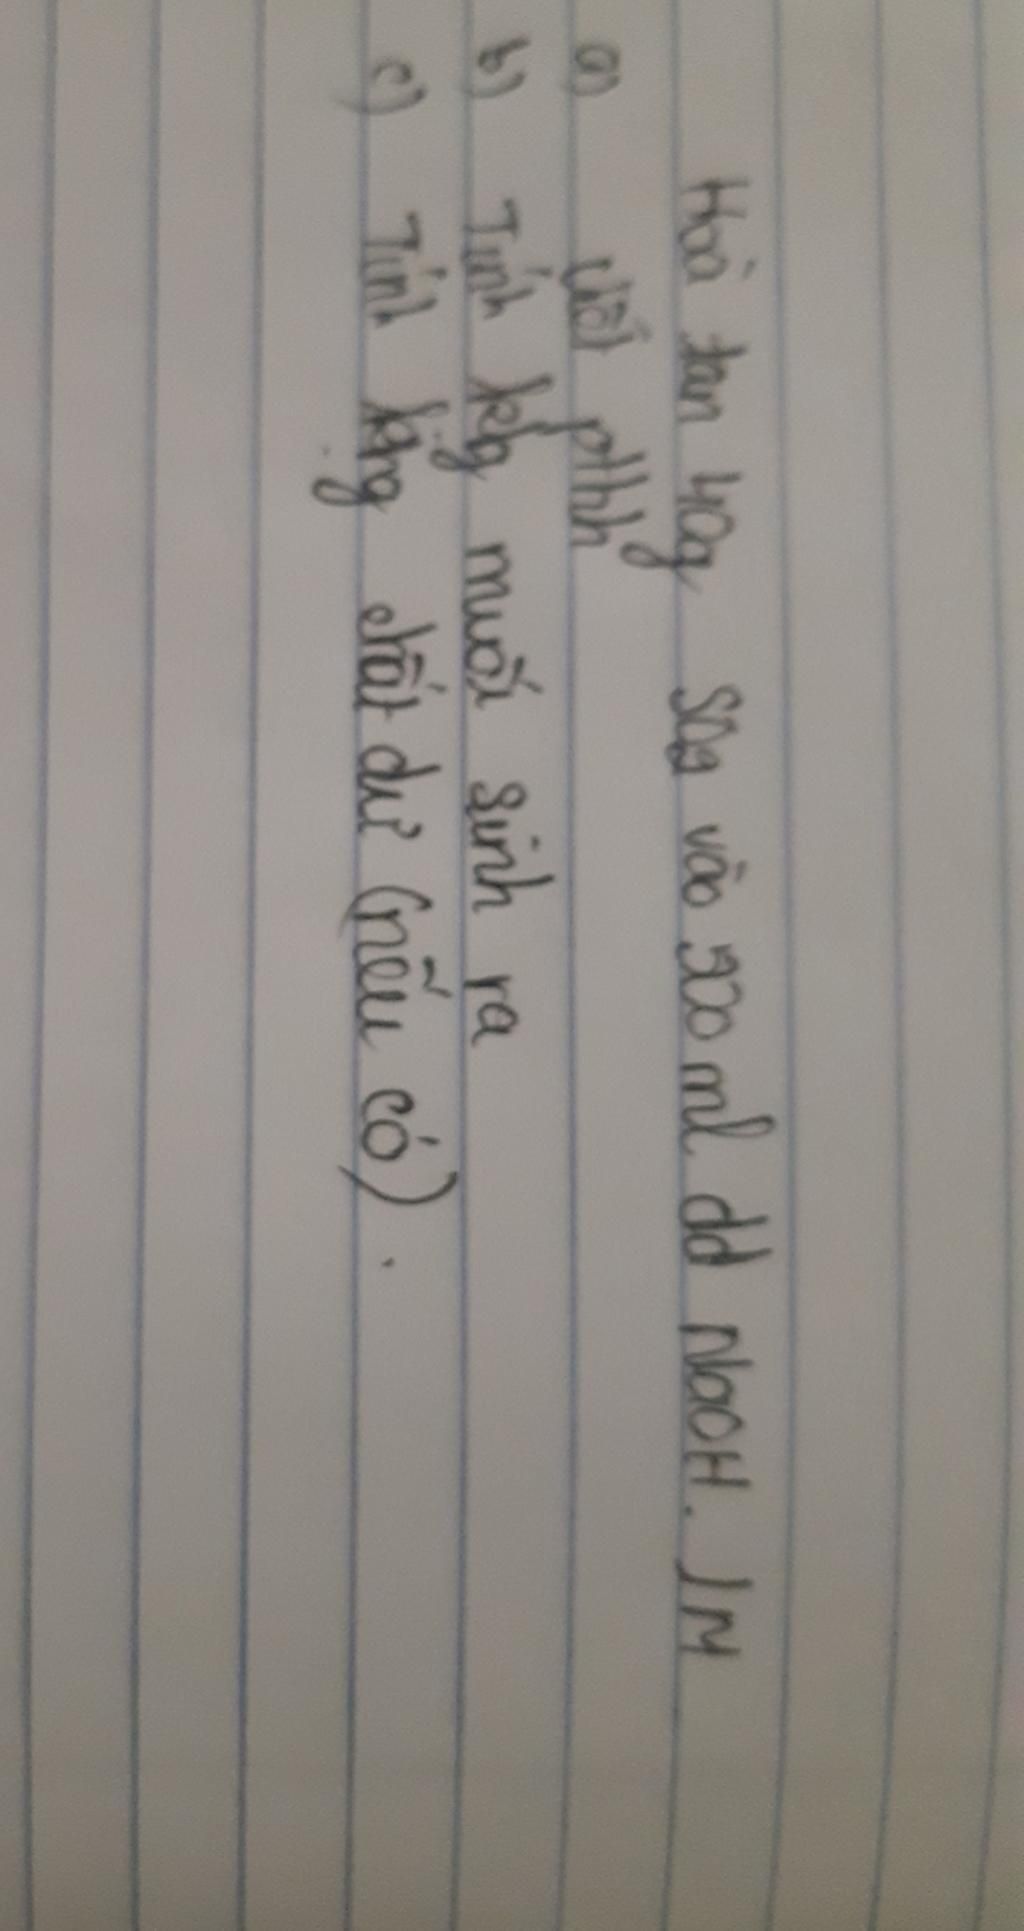 Hoà tan 40g SO3 vào 500 ml dd NaOH. 1M
a) viết pthh
b) Tính klg muối sinh ra
c) Tính klg chất dư (nếu có).